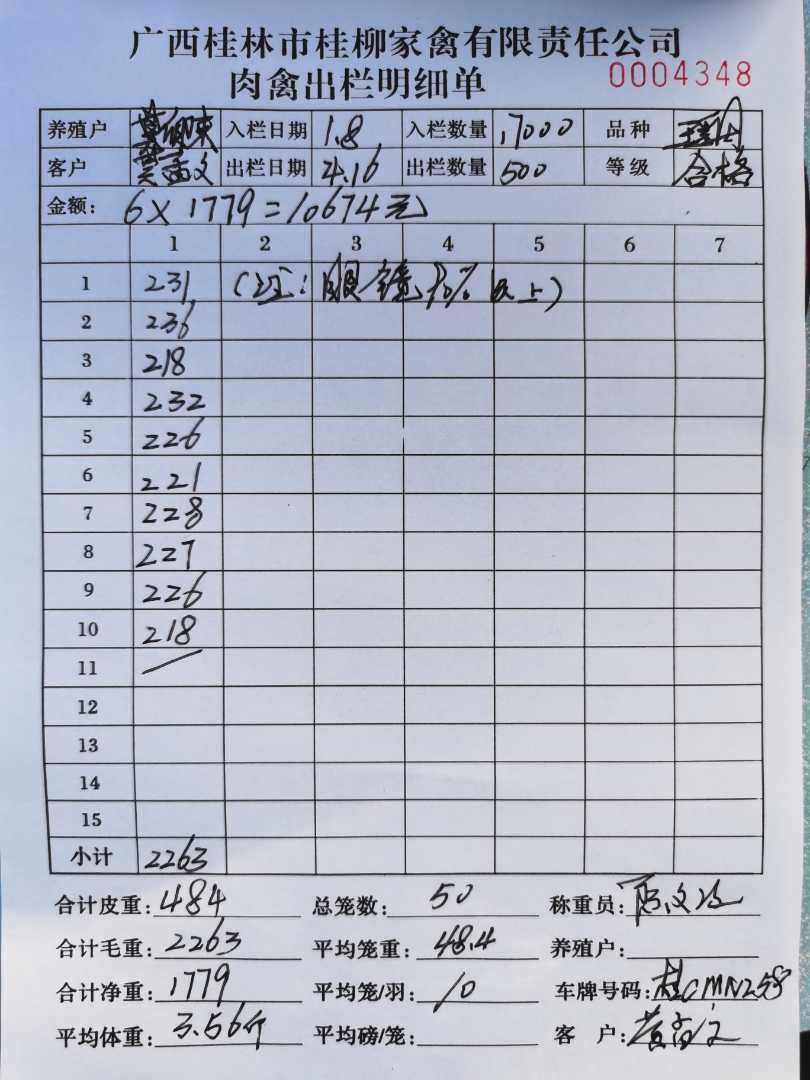 广西桂林市桂柳家禽有限责任公司
肉禽出栏明细单 0004348
养殖户 入栏日期 1.8 入栏数量 17000 品种
客户 出栏日期 4.16 出栏数量 500 等级 合格
金额: 6×1779=10674元
1 2 3 4 5 6 7
1 231 (注:眼镜90%以上)
2 236
3 218
4 232
5 226
6 221
7 228
8 227
9 226
10 218
11
12
13
14
15
小计 2263
合计皮重: 484 总笼数: 50 称重员:
合计毛重: 2263 平均笼重: 48.4 养殖户:
合计净重: 1779 平均笼/羽: 10 车牌号码: 桂CMN258
平均体重: 3.56斤 平均磅/笼: 客 户: